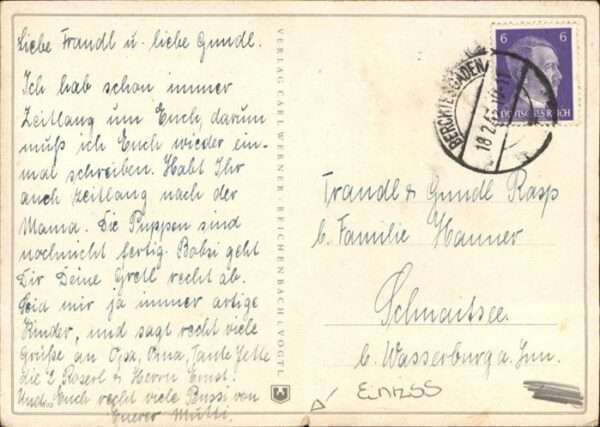 Liebe Frandl u. liebe Gundl.
Ich hab schon immer
Zeitlang um Euch, darum
muß ich Euch wieder ein-
mal schreiben. Habt Ihr
auch Zeitlang nach der
Mama. Die Puppen sind
nochnicht fertig. Bobsi geht
Dir Deine Gretl recht ab.
Seid mir ja immer artige
Kinder, und sagt recht viele
Grüße an Opa, Oma, Tante Jette
die 2 Roserl & Herrn Ernst.
Und Euch recht viele Bussi von
Euerer Mutti.
VERLAG CARL WERNER · REICHENBACH I. VOGTL.
6 6
DEUTSCHES REICH
BERCHTESGADEN
18.2.43
Trandl & Gundl Rasp
b. Familie Hanner
Schnaitsee.
b. Wasserburg a. Inn.